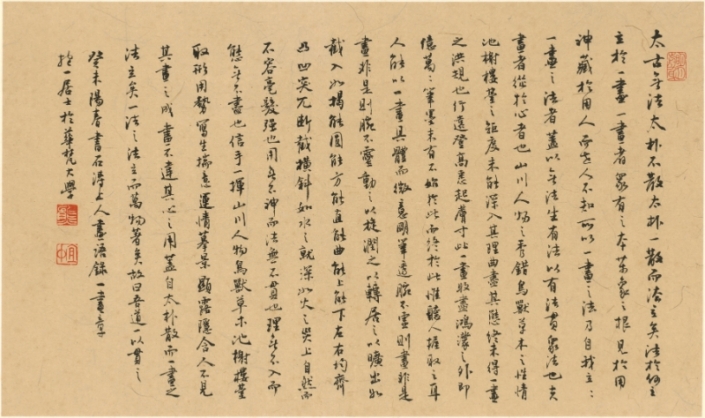 太古無法太朴不散太朴一散而法立矣法於何立
立於一畫一畫者眾有之本萬象之根見於用
神藏於用人而世人不知所以一畫之法乃自我立〻
一畫之法者蓋以無法生有法以有法貫眾法也夫
畫者從於心者也山川人物之秀錯鳥獸草木之性情
池榭樓臺之矩度未能深入其理曲盡其態終未得一畫
之洪規也行遠登高悉起膚寸此一畫收盡鴻濛之外即
億萬〻筆墨未有不始於此而終於此惟聽人握取之耳
人能以一畫具體而微意明筆透腕不靈則畫非是
畫非是則腕不靈動之以旋潤之以轉居之以曠出如
截入如揭能圓能方能直能曲能上能下左右均齊
凸凹突兀斷截橫斜如水之就深如火之炎上自然而
不容毫髮強也用無不神而法無不貫也理無不入而
態無不盡也信手一揮山川人物鳥獸草木池榭樓臺
取形用勢寫生揣意運情摹景顯露隱含人不見
其畫之成畫不違其心之用蓋自太朴散而一畫之
法立矣一法之法立而萬物著矣故曰吾道一以貫之
癸未陽春書石濤上人畫語錄一畫章
抱一居士於華梵大學